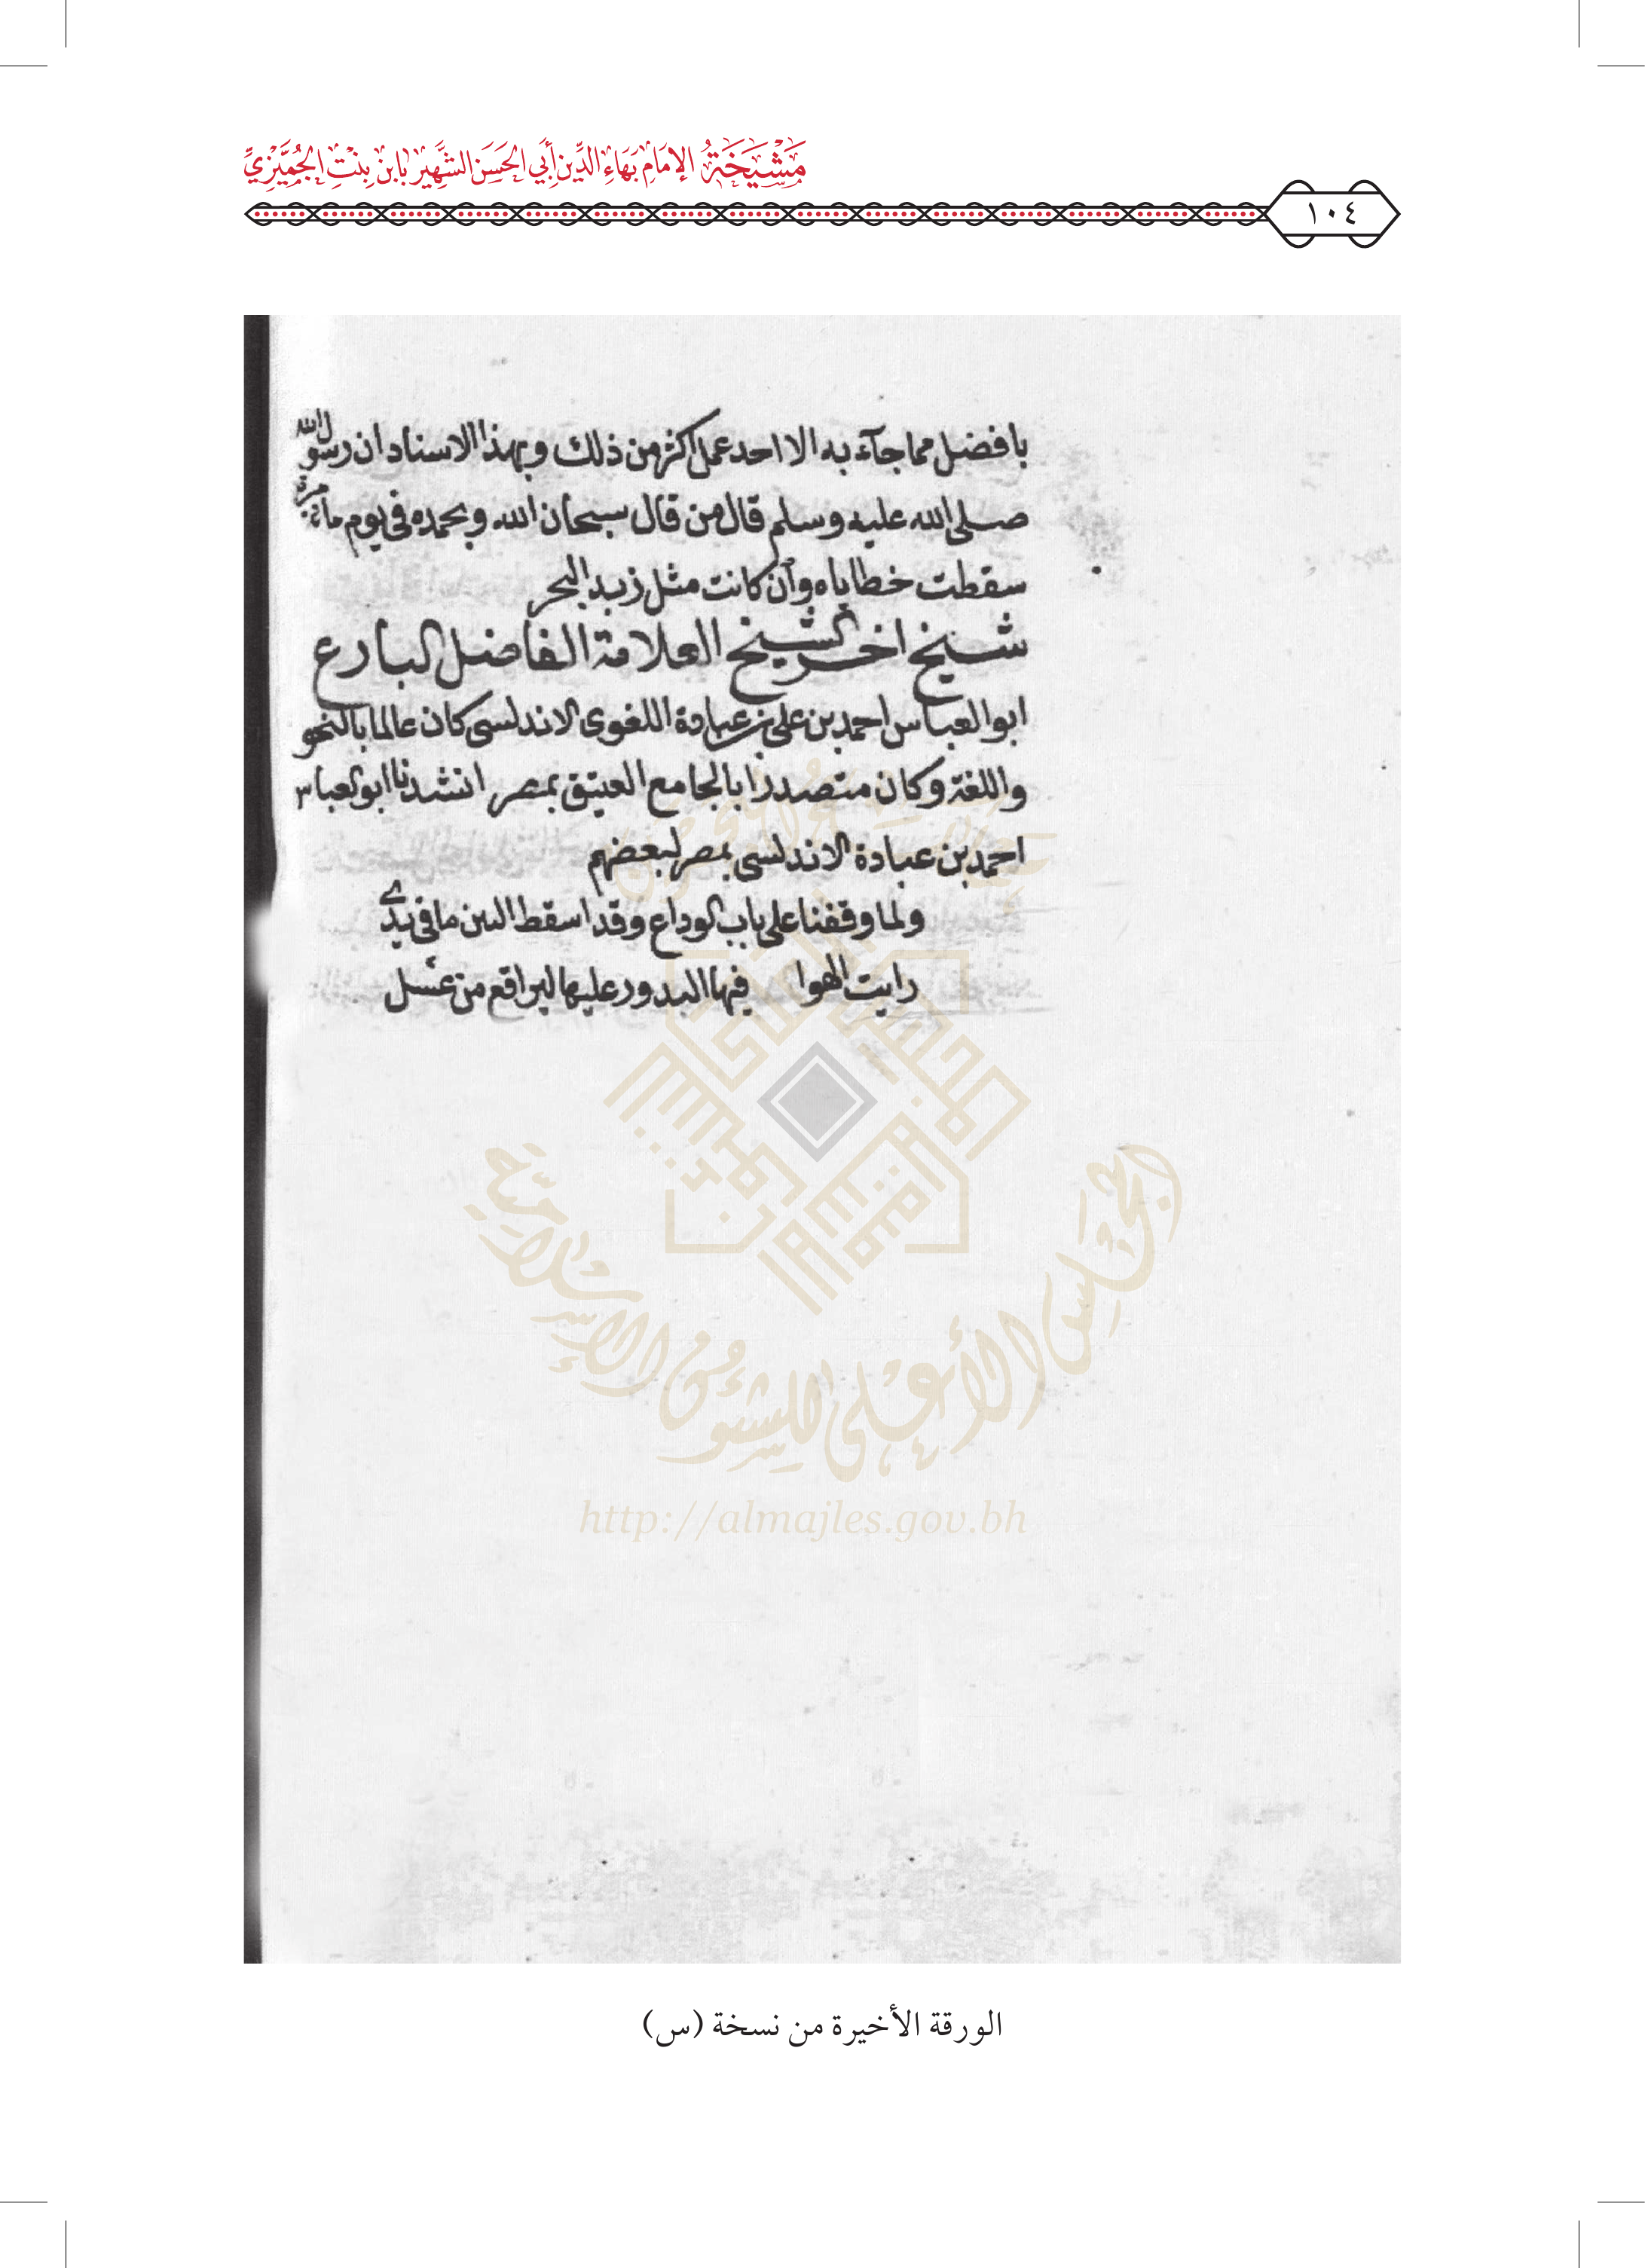 مَشْيَخَةُ الإمَامِ بَهَاءِ الدِّينِ أَبِي الحَسَنِ الشَّهِيرِ بِابنِ بِنْتِ الجُمَّيْزِيِّ
١٠٤
بافضل مما جآء به الا احد عمل اكثر من ذلك وبهذا الاسناد ان رسول الله
صلى الله عليه وسلم قال من قال سبحان الله وبحمده في يوم مائة مرة
سقطت خطاياه وان كانت مثل زبد البحر
شيخ اخر الشيخ العلامة الفاضل البارع
ابو العباس احمد بن علي بن عبادة اللغوى الاندلسى كان عالما بالنحو
واللغة وكان متصدرا بالجامع العتيق بمصر انشدنا ابو العباس
احمد بن عبادة الاندلسى بمصر لبعضهم
ولما وقفنا على باب الوداع وقد اسقط البين ما في يدي
رايت الهوا فيها البدور عليها البراقع من
المجلس الأعلى للشؤون الإسلامية
http://almajles.gov.bh
الورقة الأخيرة من نسخة (س)